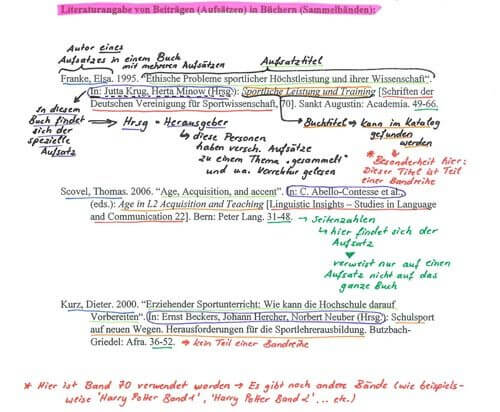 Literaturangabe von Beiträgen (Aufsätzen) in Büchern (Sammelbänden):
Autor eines
Aufsatzes in einem Buch
mit mehreren Aufsätzen
Aufsatztitel
Franke, Elsa. 1995. "Ethische Probleme sportlicher Höchstleistung und ihrer Wissenschaft".
In: Jutta Krug, Herta Minow (Hrsg.): Sportliche Leistung und Training [Schriften der
Deutschen Vereinigung für Sportwissenschaft, 70]. Sankt Augustin: Academia. 49-66.
In diesem
Buch findet
sich der
spezielle
Aufsatz
Hrsg = Herausgeber
↳ diese Personen
haben versch. Aufsätze
zu einem Thema "gesammelt"
und u.a. Korrektur gelesen
Buchtitel → kann im Katalog
gefunden
werden
* Besonderheit hier:
Dieser Titel ist Teil
einer Bandreihe
Scovel, Thomas. 2006. "Age, Acquisition, and accent". In: C. Abello-Contesse et al.,
(eds.): Age in L2 Acquisition and Teaching [Linguistic Insights – Studies in Language
and Communication 22]. Bern: Peter Lang. 31-48.
→ Seitenzahlen
↳ hier findet sich der
Aufsatz
↓
verweist nur auf einen
Aufsatz nicht auf das
ganze Buch
Kurz, Dieter. 2000. "Erziehender Sportunterricht: Wie kann die Hochschule darauf
Vorbereiten". In: Ernst Beckers, Johann Hercher, Norbert Neuber (Hrsg.): Schulsport
auf neuen Wegen. Herausforderungen für die Sportlehrerausbildung. Butzbach-
Griedel: Afra. 36-52. → kein Teil einer Bandreihe
* Hier ist Band 70 verwendet worden → Es gibt noch andere Bände (wie beispiels-
weise 'Harry Potter Band 1', 'Harry Potter Band 2' ... etc.)